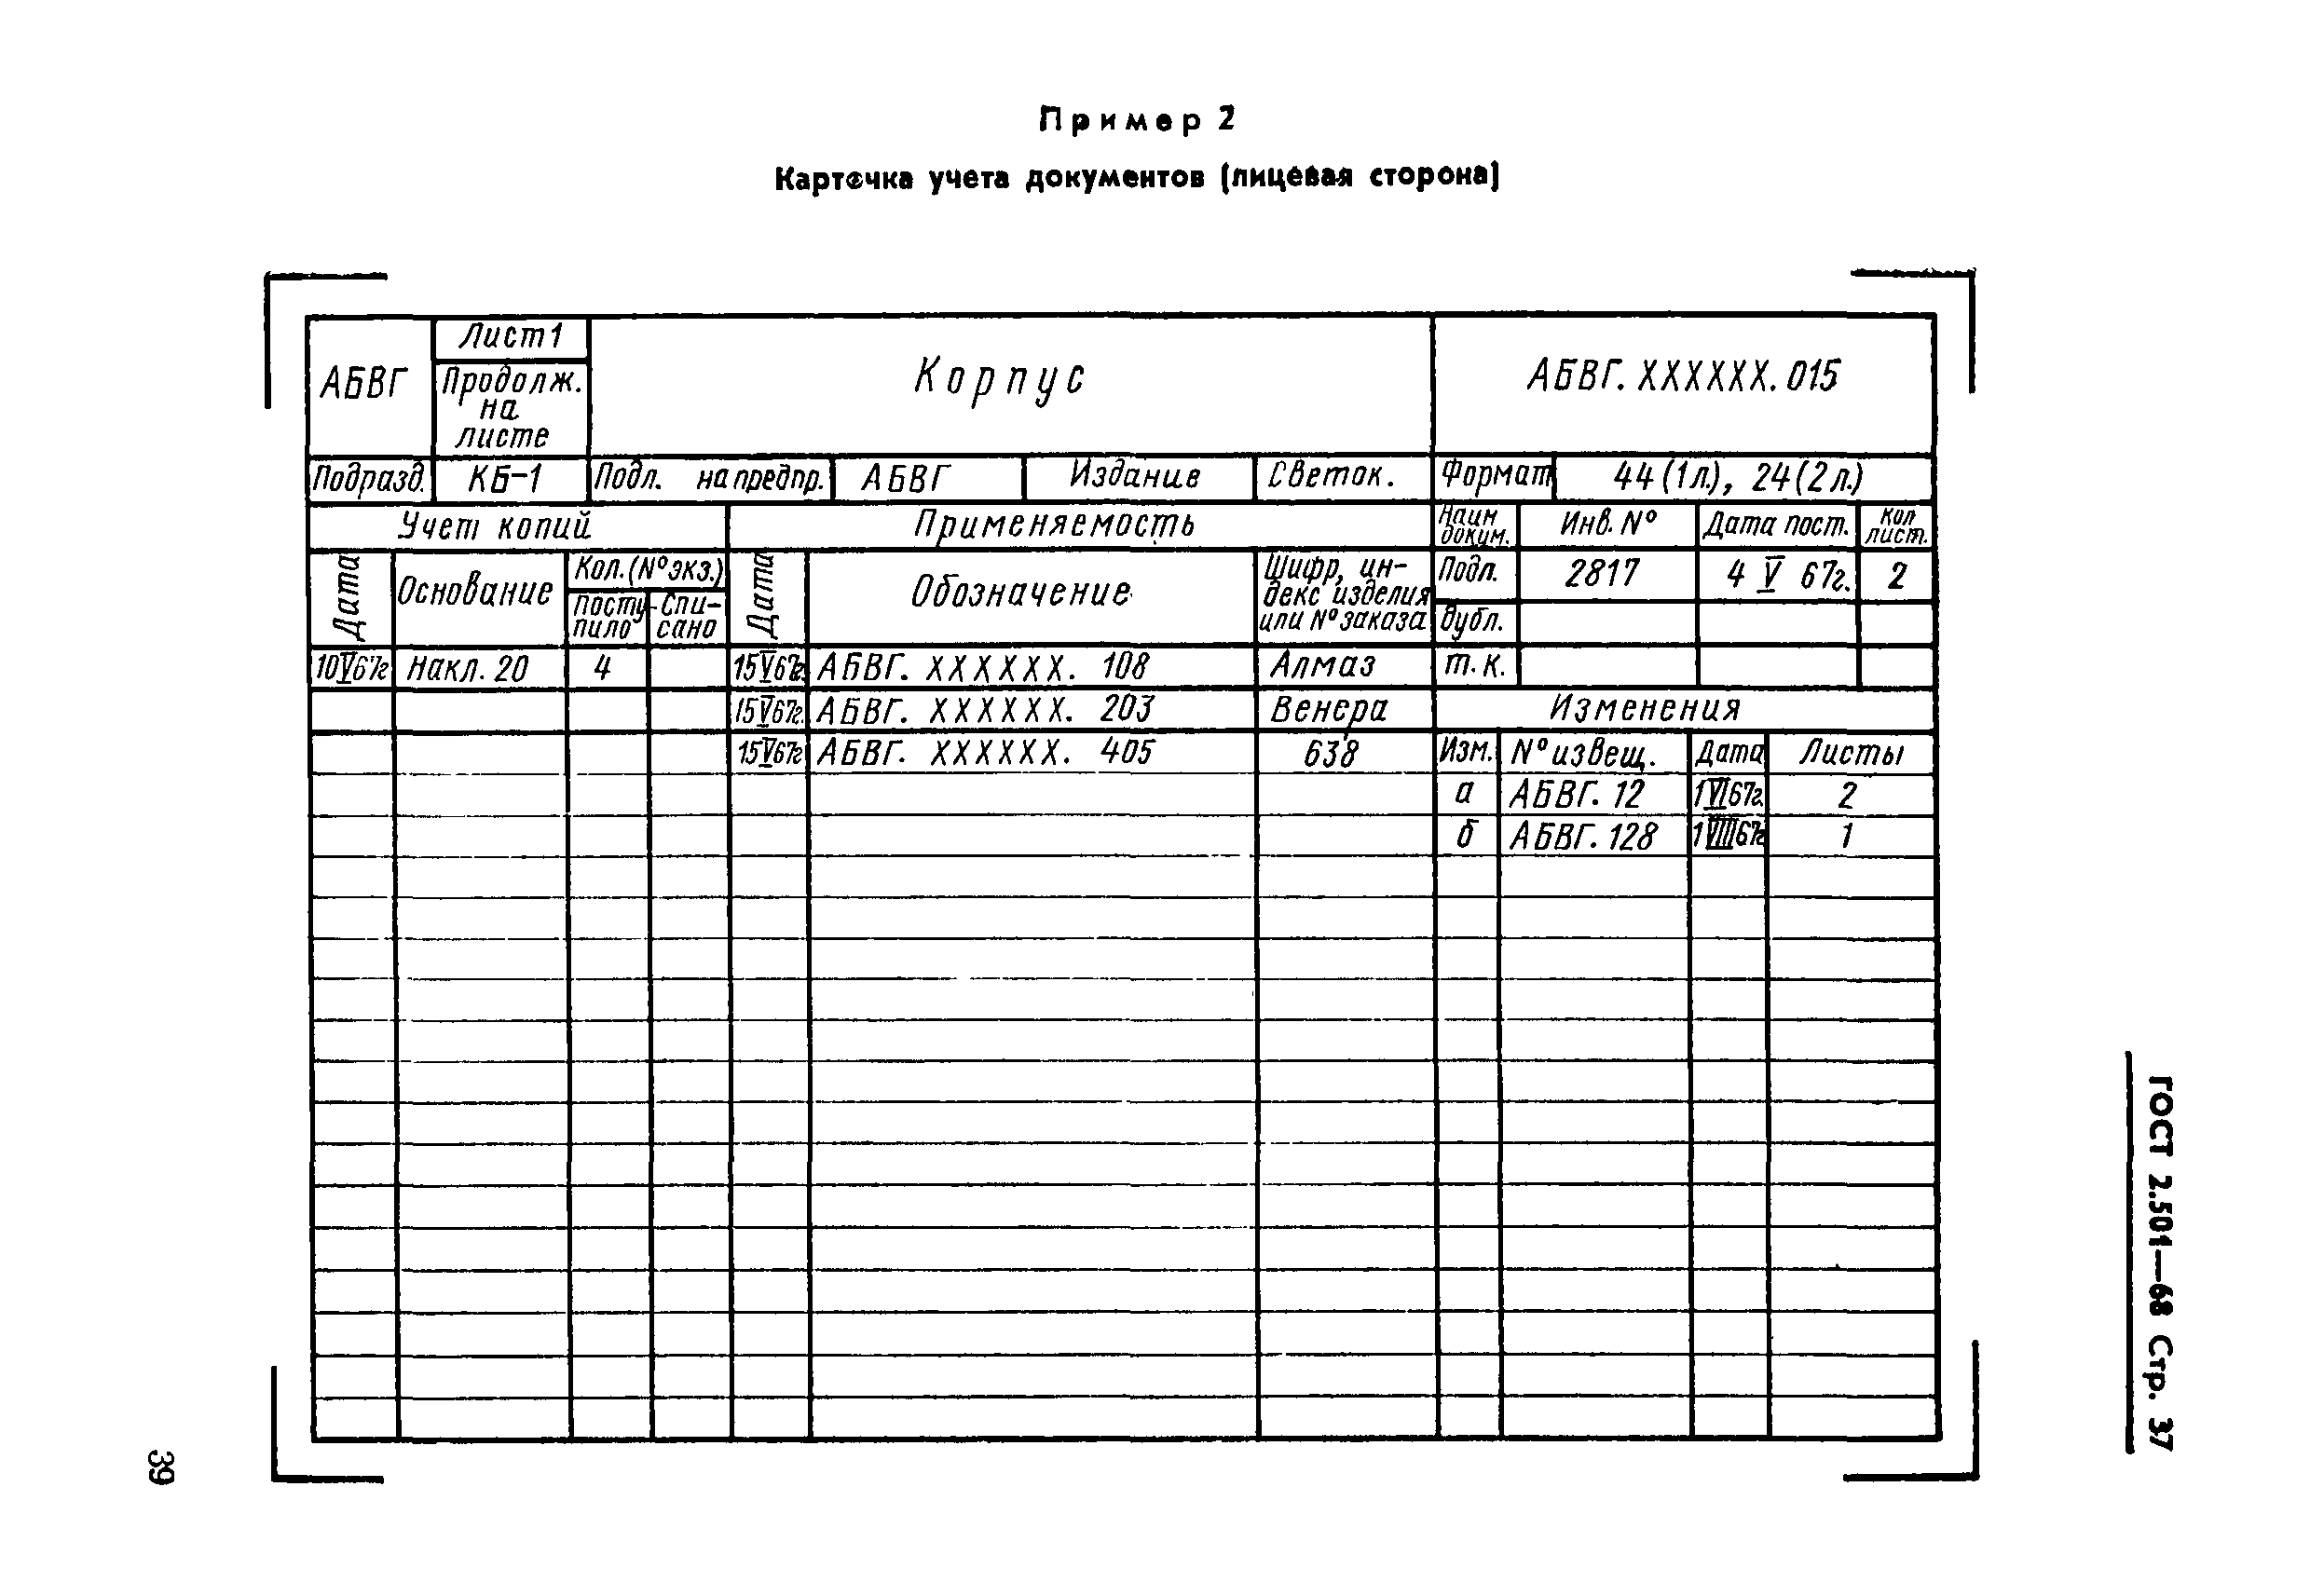 Пример 2
Карточка учета документов (лицевая сторона)
АБВГ
Лист 1
Продолж.
на
листе
Корпус
АБВГ. XXXXXX. 015
Подразд.
КБ-1
Подл. на предпр.
АБВГ
Издание
Светок.
Формат
44 (1л.), 24 (2л.)
Учет копий
Применяемость
Наим
докум.
Инв. №
Дата пост.
Кол
лист.
Дата
Основание
Кол. (№ экз.)
Посту-
пило
Спи-
сано
Дата
Обозначение
Шифр, ин-
декс изделия
или № заказа
Подл.
2817
4 V 67г.
2
Дубл.
10V67г
Накл. 20
4
15V67г.
АБВГ. XXXXXX. 108
Алмаз
Т. К.
15V67г.
АБВГ. XXXXXX. 203
Венера
Изменения
15V67г
АБВГ. XXXXXX. 405
638
Изм.
№ извещ.
Дата
Листы
а
АБВГ. 12
1VI67г.
2
б
АБВГ. 128
1VIII67г
1
ГОСТ 2.501—68 Стр. 37
39